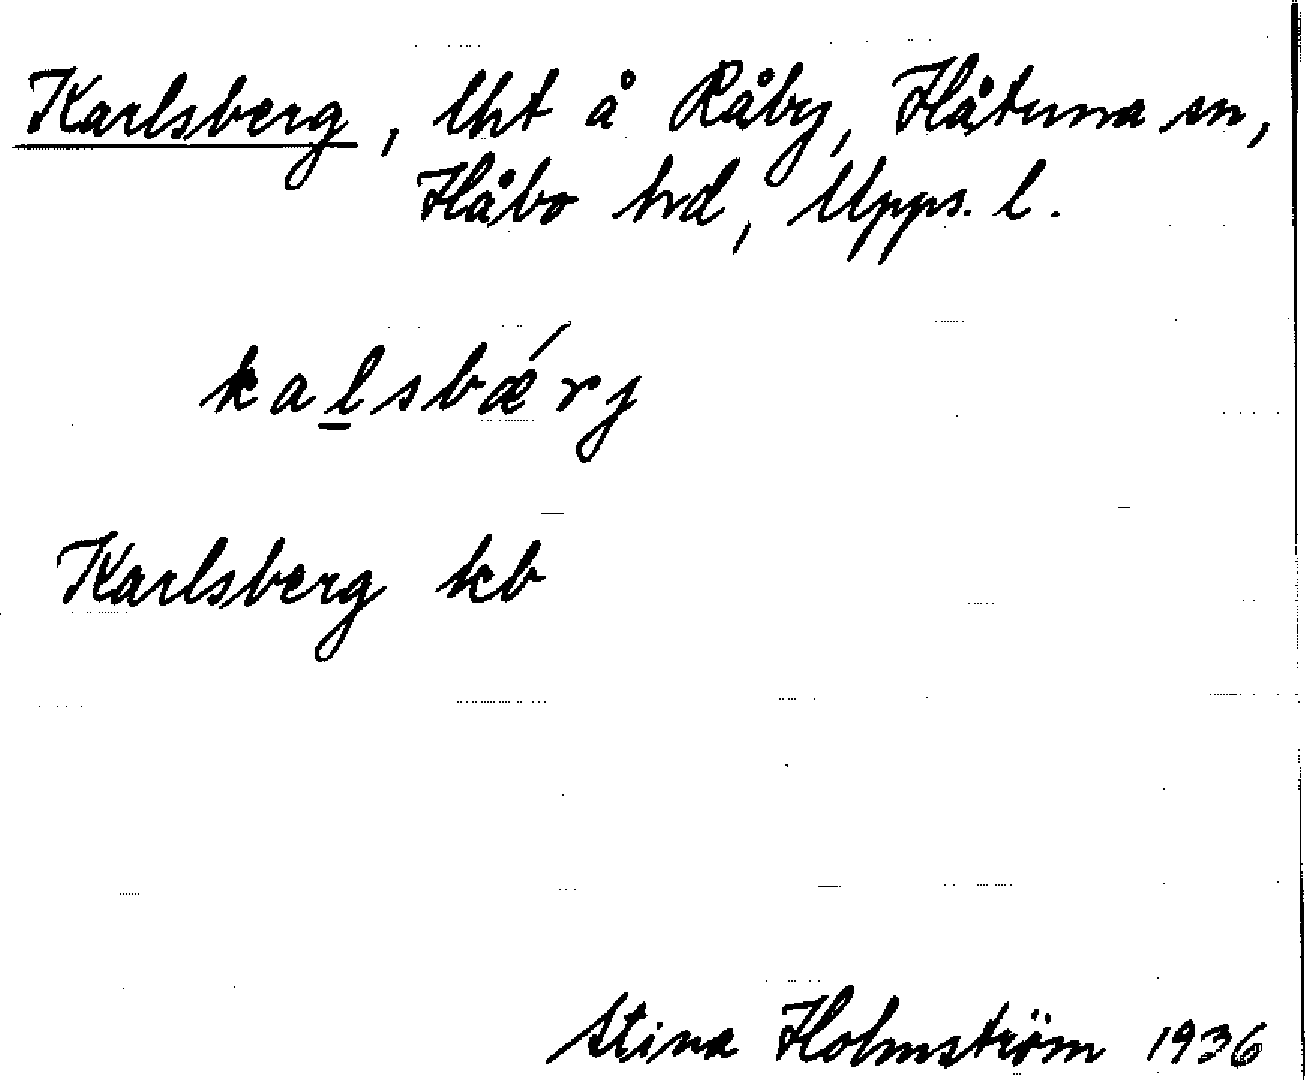 Karlsberg, lht å Råby, Håtuna sn,
Håbo hd, Upps. l.
kaḻsbǽrj
Karlsberg kb
Stina Holmström 1936